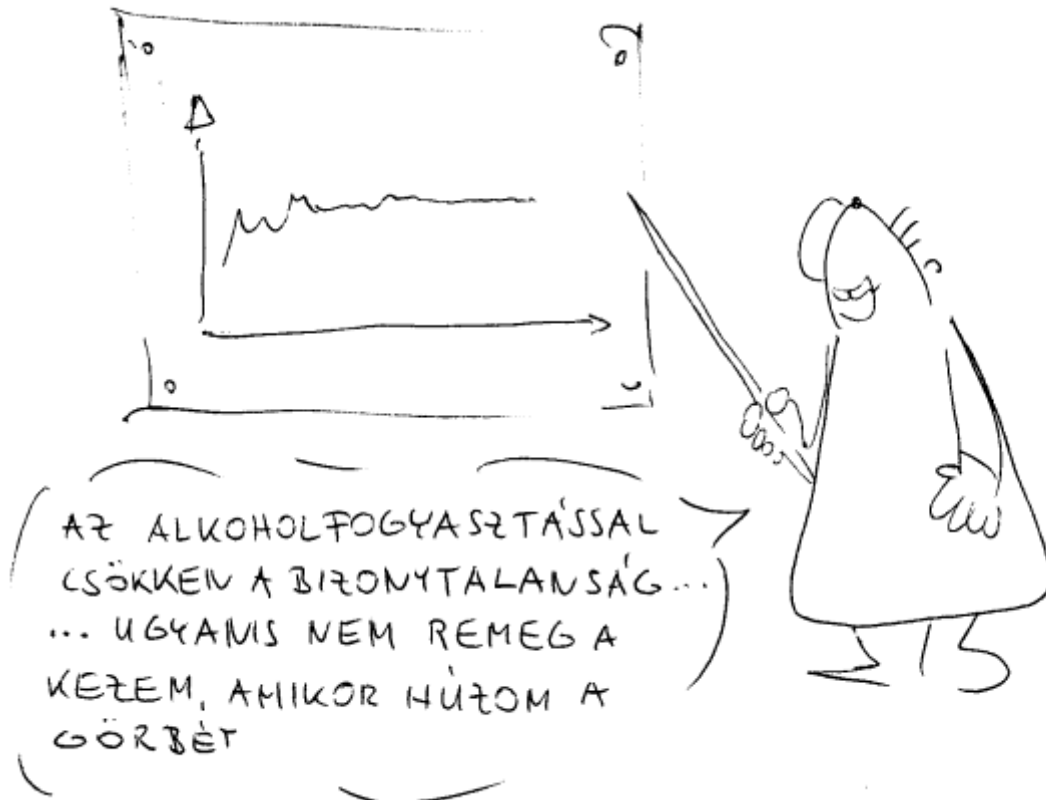 AZ ALKOHOLFOGYASZTÁSSAL
CSÖKKEN A BIZONYTALANSÁG...
... UGYANIS NEM REMEG A
KEZEM, AMIKOR HÚZOM A
GÖRBÉT